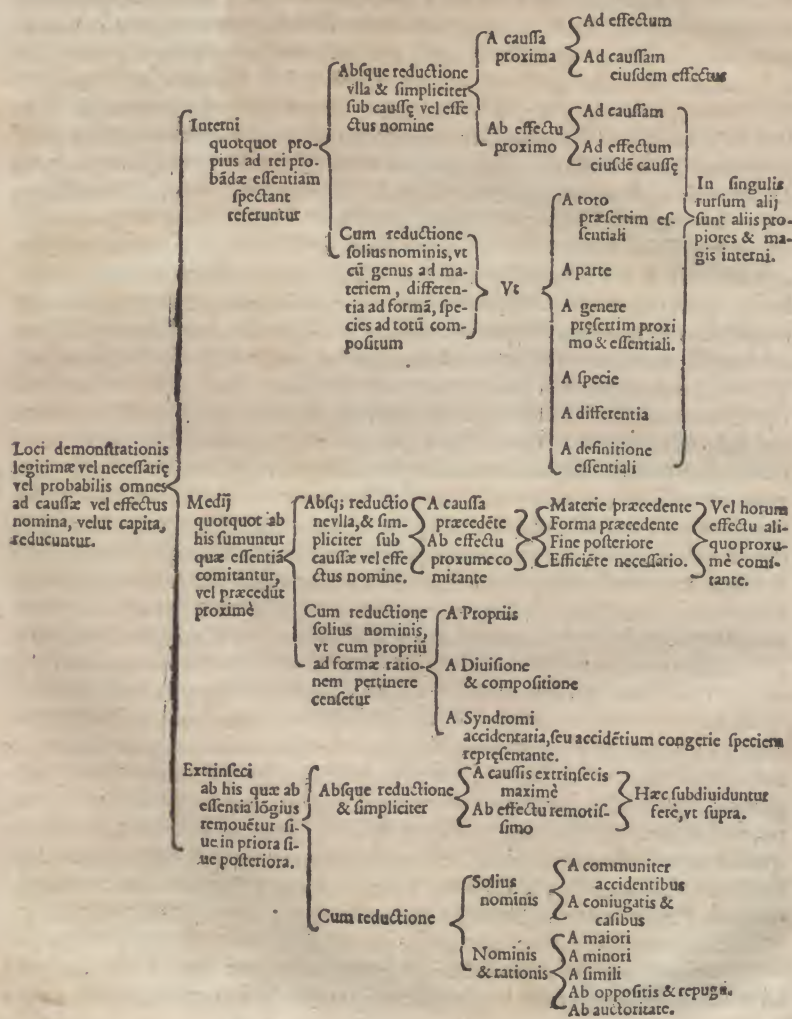 Loci demonstrationis
legitimæ vel necessarię
vel probabilis omnes
ad caussæ vel effectus
nomina, velut capita,
reducuntur.
Interni
quotquot pro-
pius ad rei pro-
bãdæ essentiam
spectant
referuntur
Absque reductione
vlla & simpliciter
sub caussę vel effe
ctus nomine
A caussa
proxima
Ad effectum
Ad caussam
eiusdem effectus
Ab effectu
proximo
Ad caussam
Ad effectum
eiusdē caussę
Cum reductione
solius nominis, vt
cũ genus ad ma-
teriem, differen-
tia ad formã, spe-
cies ad totũ com-
positum
Vt
A toto
præsertim es-
sentiali
A parte
A genere
pręsertim proxi
mo & essentiali.
A specie
A differentia
A definitione
essentiali
In singulis
rursum alij
sunt aliis pro-
piores & ma-
gis interni.
Medij
quotquot ab
his sumuntur
quæ essentiã
comitantur,
vel præcedũt
proximè
Absq; reductio
nevlla, & sim-
pliciter sub
caussæ vel effe
ctus nomine.
A caussa
præcedēte
Ab effectu
proxume co
mitante
Materie præcedente
Forma præcedente
Fine posteriore
Efficiēte necessario.
Vel horum
effectu ali-
quo proxu-
mè comi-
tante.
Cum reductione
solius nominis,
vt cum propriũ
ad formæ ratio-
nem pertinere
censetur
A Propriis
A Diuisione
& compositione
A Syndromi
accidentaria, seu accidētium congerie speciem
repręsentante.
Extrinseci
ab his quæ ab
essentia lõgius
remouētur si-
ue in priora si-
ue posteriora.
Absque reductione
& simpliciter
A caussis extrinsecis
maximè
Ab effectu remotis-
simo
Hæc subdiuiduntur
ferè, vt supra.
Cum reductione
Solius
nominis
A communiter
accidentibus
A coniugatis &
casibus
Nominis
& rationis
A maiori
A minori
A simili
Ab oppositis & repugn.
Ab auctoritate.